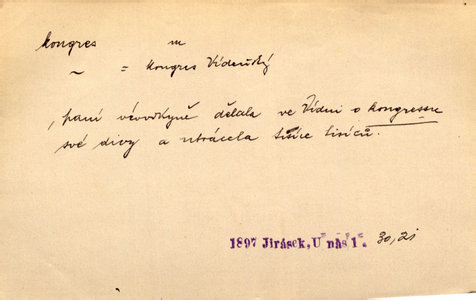 kongres m
~ = kongres Vídeňský
, paní vévodkyně dělala ve Vídni o kongressu
své divy a utrácela tisíce tisíců.
1897 Jirásek, U nás 1. 30, 21